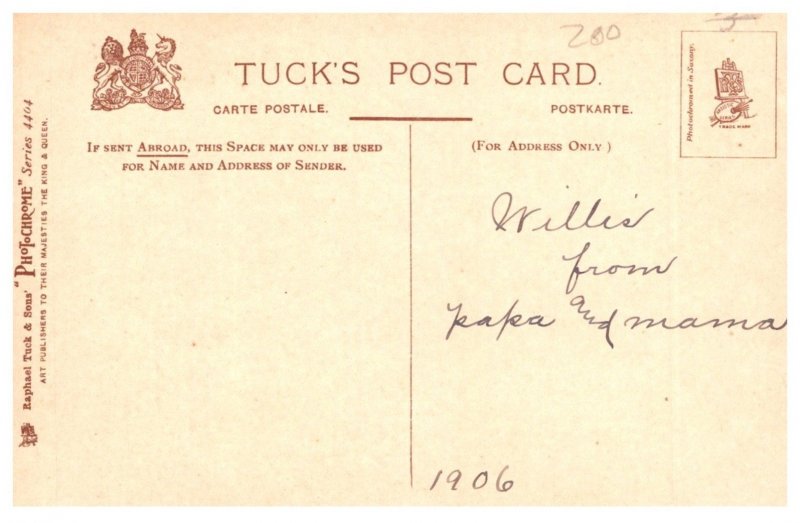 200
TUCK'S POST CARD.
CARTE POSTALE.
POSTKARTE.
IF SENT ABROAD, THIS SPACE MAY ONLY BE USED
FOR NAME AND ADDRESS OF SENDER.
(FOR ADDRESS ONLY)
Photochromed in Saxony.
TRADE MARK
Raphael Tuck & Sons' "PHOTOCHROME" Series 4404
ART PUBLISHERS TO THEIR MAJESTIES THE KING & QUEEN.
Willis
from
papa and mama
1906